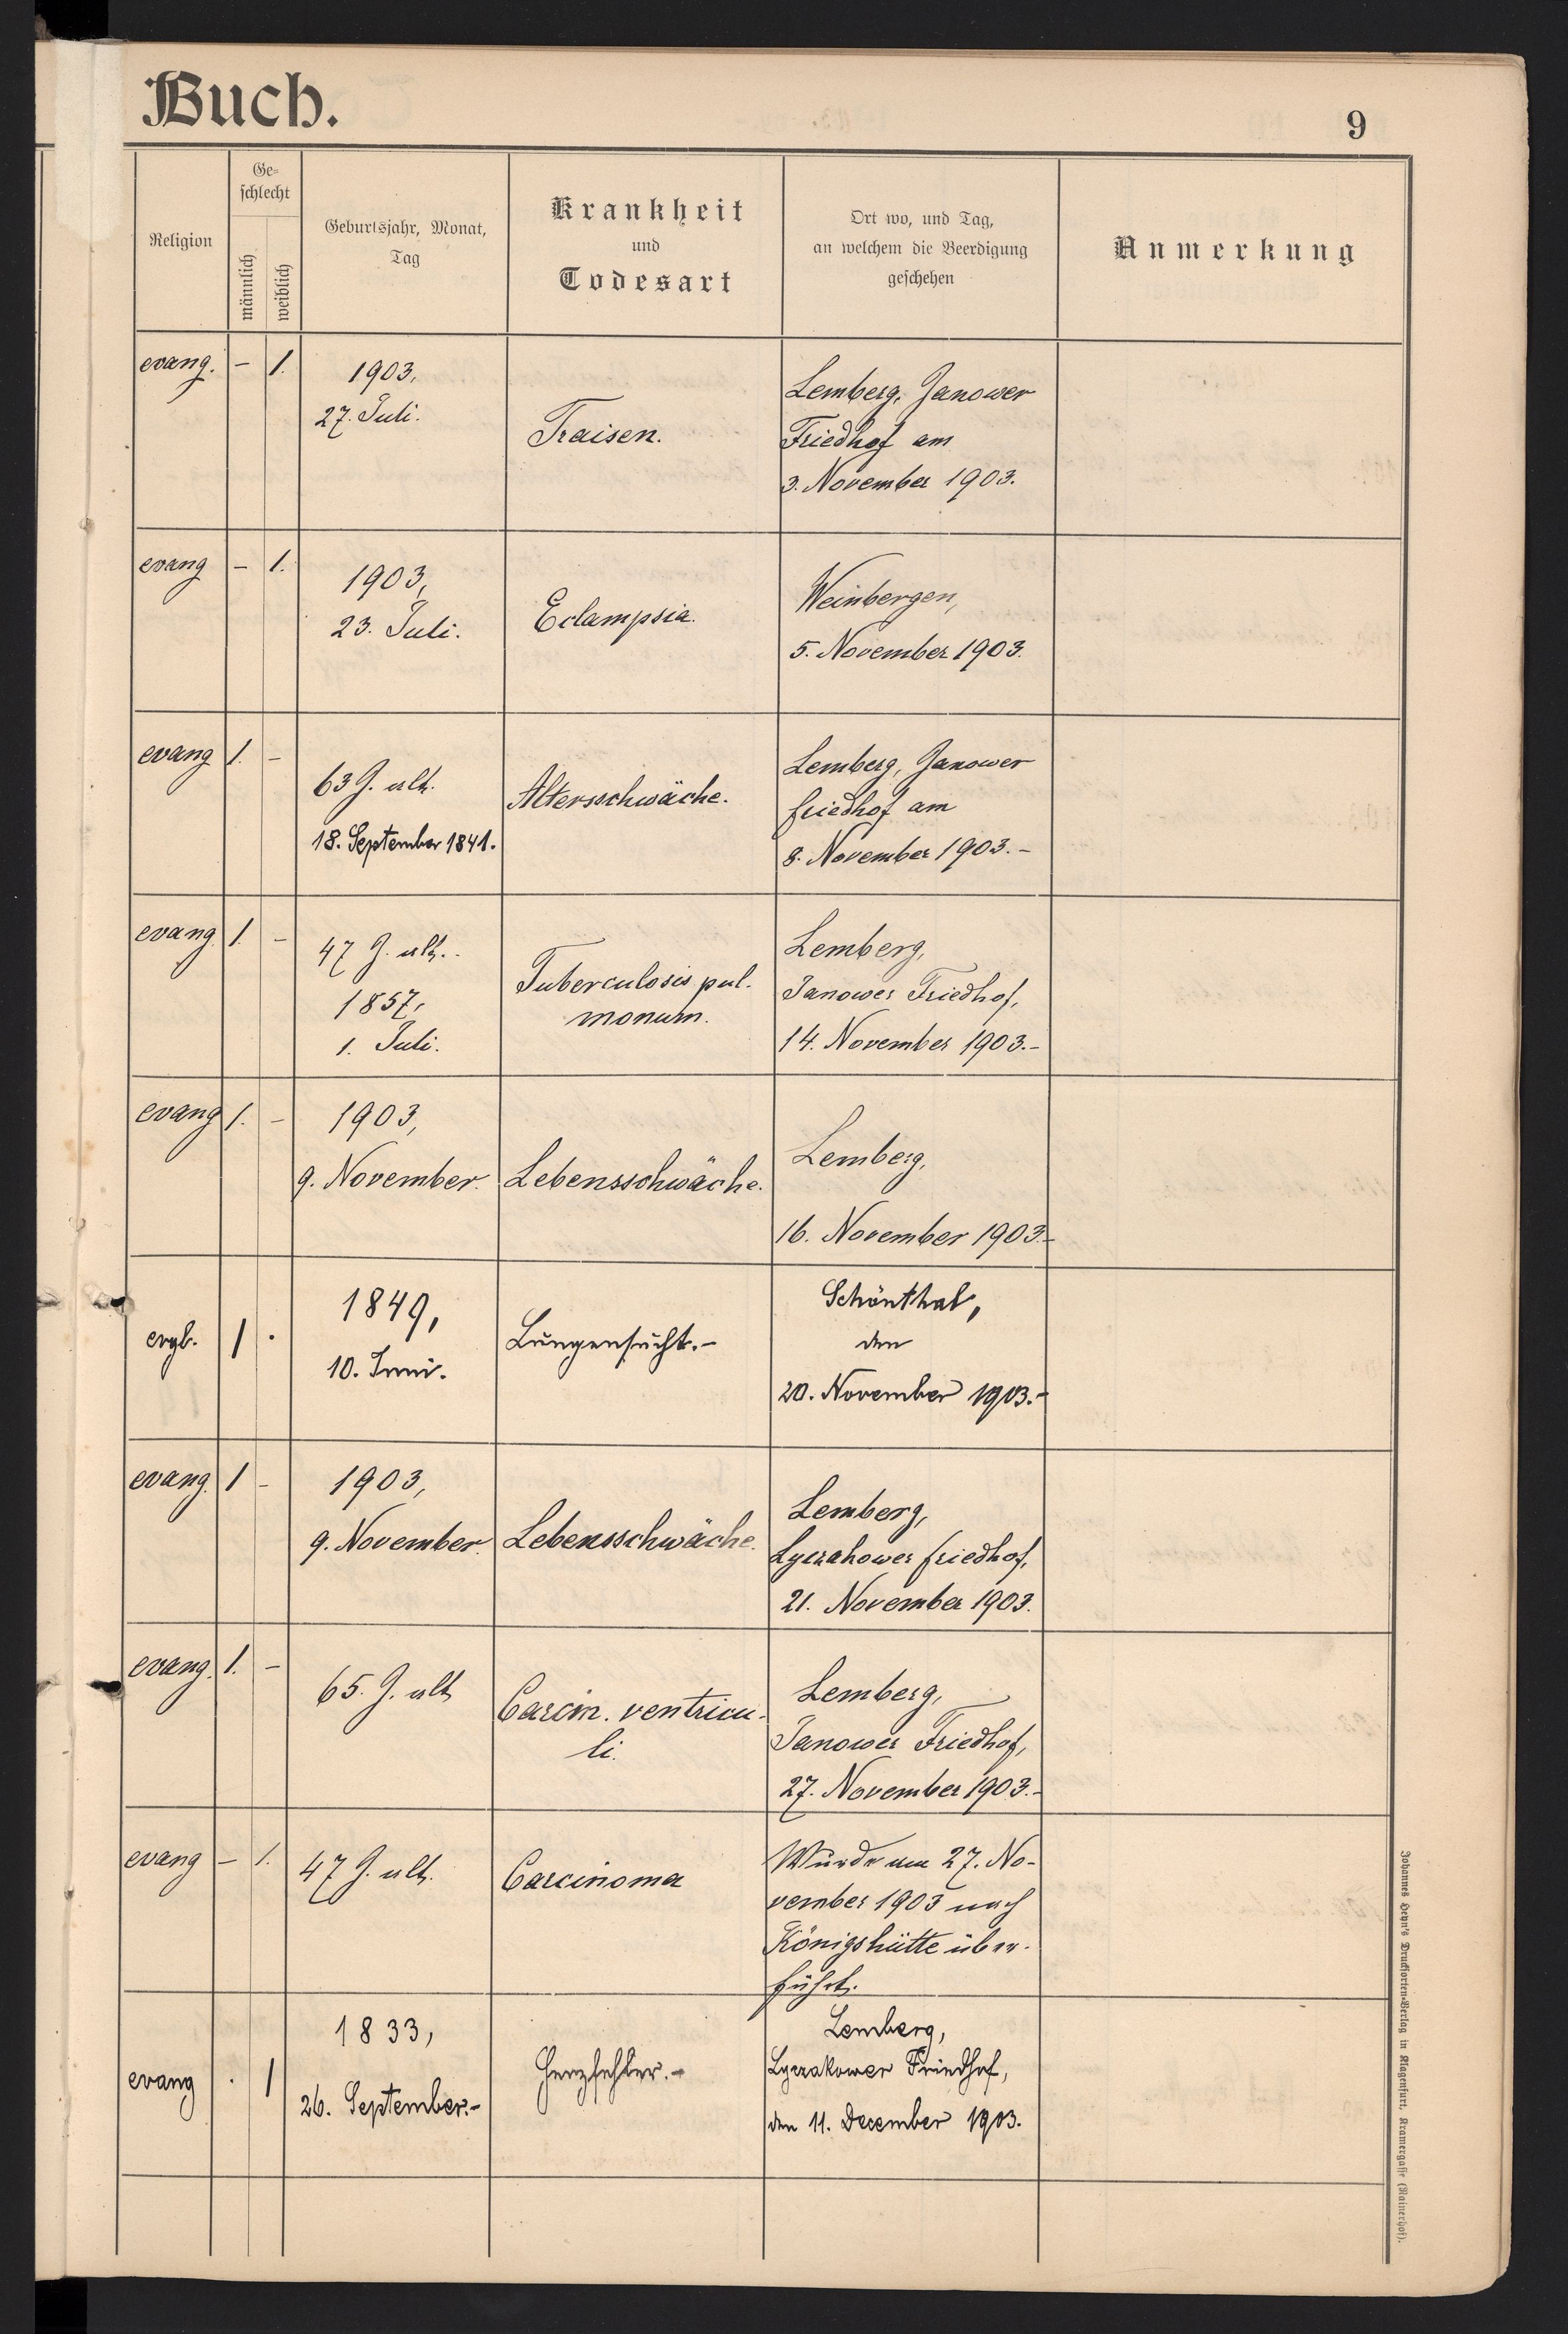 Buch.
9
Religion
Ge-
schlecht
männlich
weiblich
Geburtsjahr, Monat,
Tag
Krankheit
und
Todesart
Ort wo, und Tag,
an welchem die Beerdigung
geschehen
Anmerkung
evang. - 1.
1903,
27. Juli.
Fraisen.
Lemberg, Janower
Friedhof am
3. November 1903.
evang - 1.
1903,
23. Juli.
Eclampsia.
Weinbergen,
5. November 1903.
evang 1. -
63 J. alt.
18. September 1841.
Altersschwäche.
Lemberg, Janower
Friedhof am
8. November 1903.-
evang. 1. -
47 J. alt.
1857,
1. Juli.
Tuberculosis pul-
monum.
Lemberg,
Janower Friedhof,
14. November 1903.-
evang 1. -
1903,
9. November.
Lebensschwäche.
Lemberg,
16. November 1903.-
evgl. 1 .
1849,
10. Juni.
Lungensucht.-
Schönthal,
den
20. November 1903.-
evang. 1 -
1903,
9. November.
Lebensschwäche.
Lemberg,
Lyczakower Friedhof,
21. November 1903.
evang. 1. -
65. J. alt
Carcin. ventricu-
li.
Lemberg,
Janower Friedhof,
27. November 1903.-
evang - 1.
47 J. alt.
Carcinoma
Wurde am 27. No-
vember 1903 nach
Königshütte über-
führt.
evang . 1
1833,
26. September.-
Herzfehler.-
Lemberg,
Lyczakower Friedhof,
den 11. December 1903.
Johannes Heyn's Drucksorten-Verlag in Klagenfurt, Kramergasse (Rainerhof).